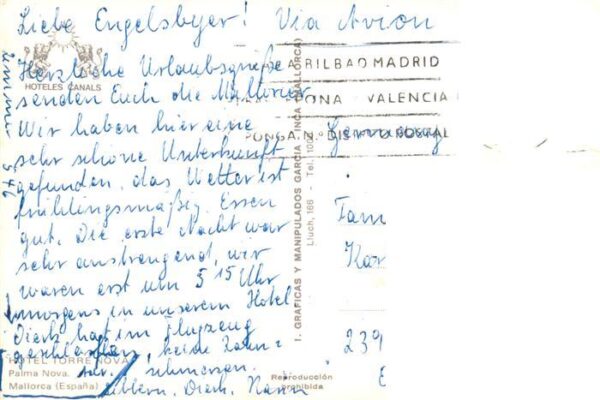 Liebe Engelsbyer! Via Avion
HOTELES CANALS
Herzliche Urlaubsgrüße
senden Euch die
Wir haben hier eine
sehr schöne Unterkunft
gefunden, das Wetter ist
frühlingsmäßig. Essen
gut. Die erste Nacht war
sehr anstrengend, wir
waren erst um 5 15 Uhr
morgens in unserem Hotel
Dierk hat im Flugzeug
geschlafen, keine Zahn=
schmerzen.
Dierk,
HOTEL TORRE NOVA
Palma Nova.
Mallorca (España)
Zimmer
546
A BILBAO MADRID
ONA VALENCIA
PONGA N.º DISTRITO POSTAL
Germany
I. GRAFICAS Y MANIPULADOS GARCIA - INCA (MALLORCA)
Lluch, 166 - Tel.
Fam
Kar
239
Reproducción
prohibida